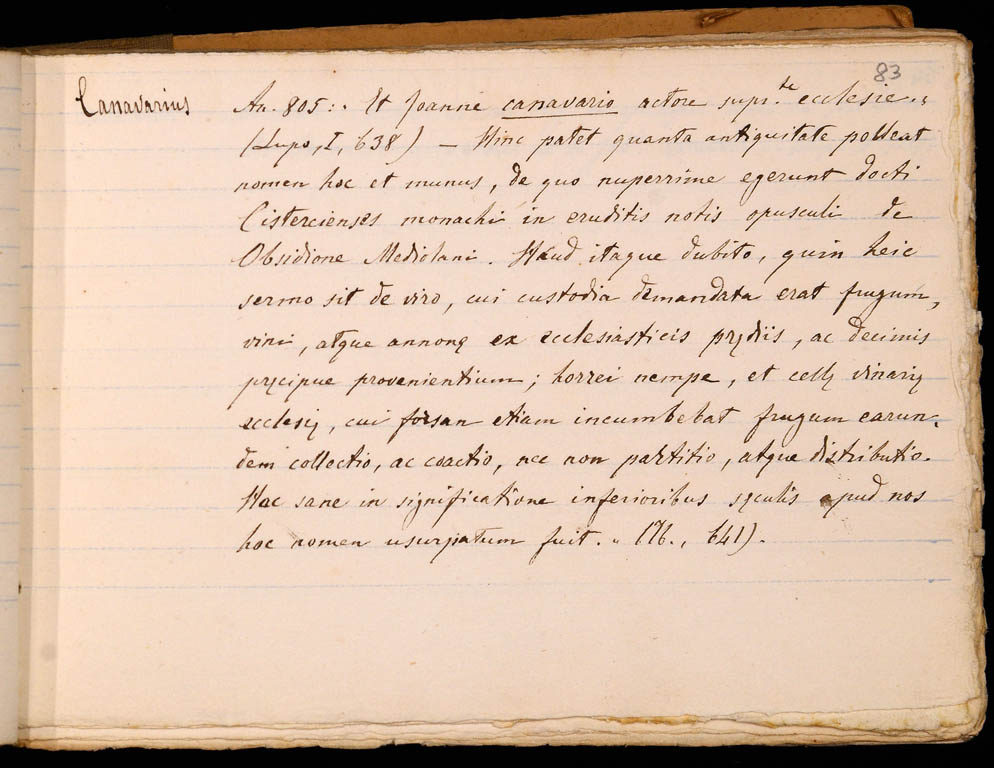 83
Canavarius
An. 805: „ Et Joanne canavario actore supr.te ecclesie „
(Lupo, I, 638) — Hinc patet quanta antiquitate polleat
nomen hoc et munus, de quo nuperrime egerunt docti
Cistercienses monachi in eruditis notis opusculi de
Obsidione Mediolani. Haud itaque dubito, quin heic
sermo sit de viro, cui custodia demandata erat frugum,
vini, atque annonę ex ecclesiasticis prędiis, ac decimis
pręcipue provenientium; horrei nempe, et cellę vinarię
ecclesię, cui forsan etiam incumbebat frugum earun-
dem collectio, ac coactio, nec non partitio, atque distributio.
Hac sane in significatione inferioribus sęculis apud nos
hoc nomen usurpatum fuit. „ (Ib., 641).